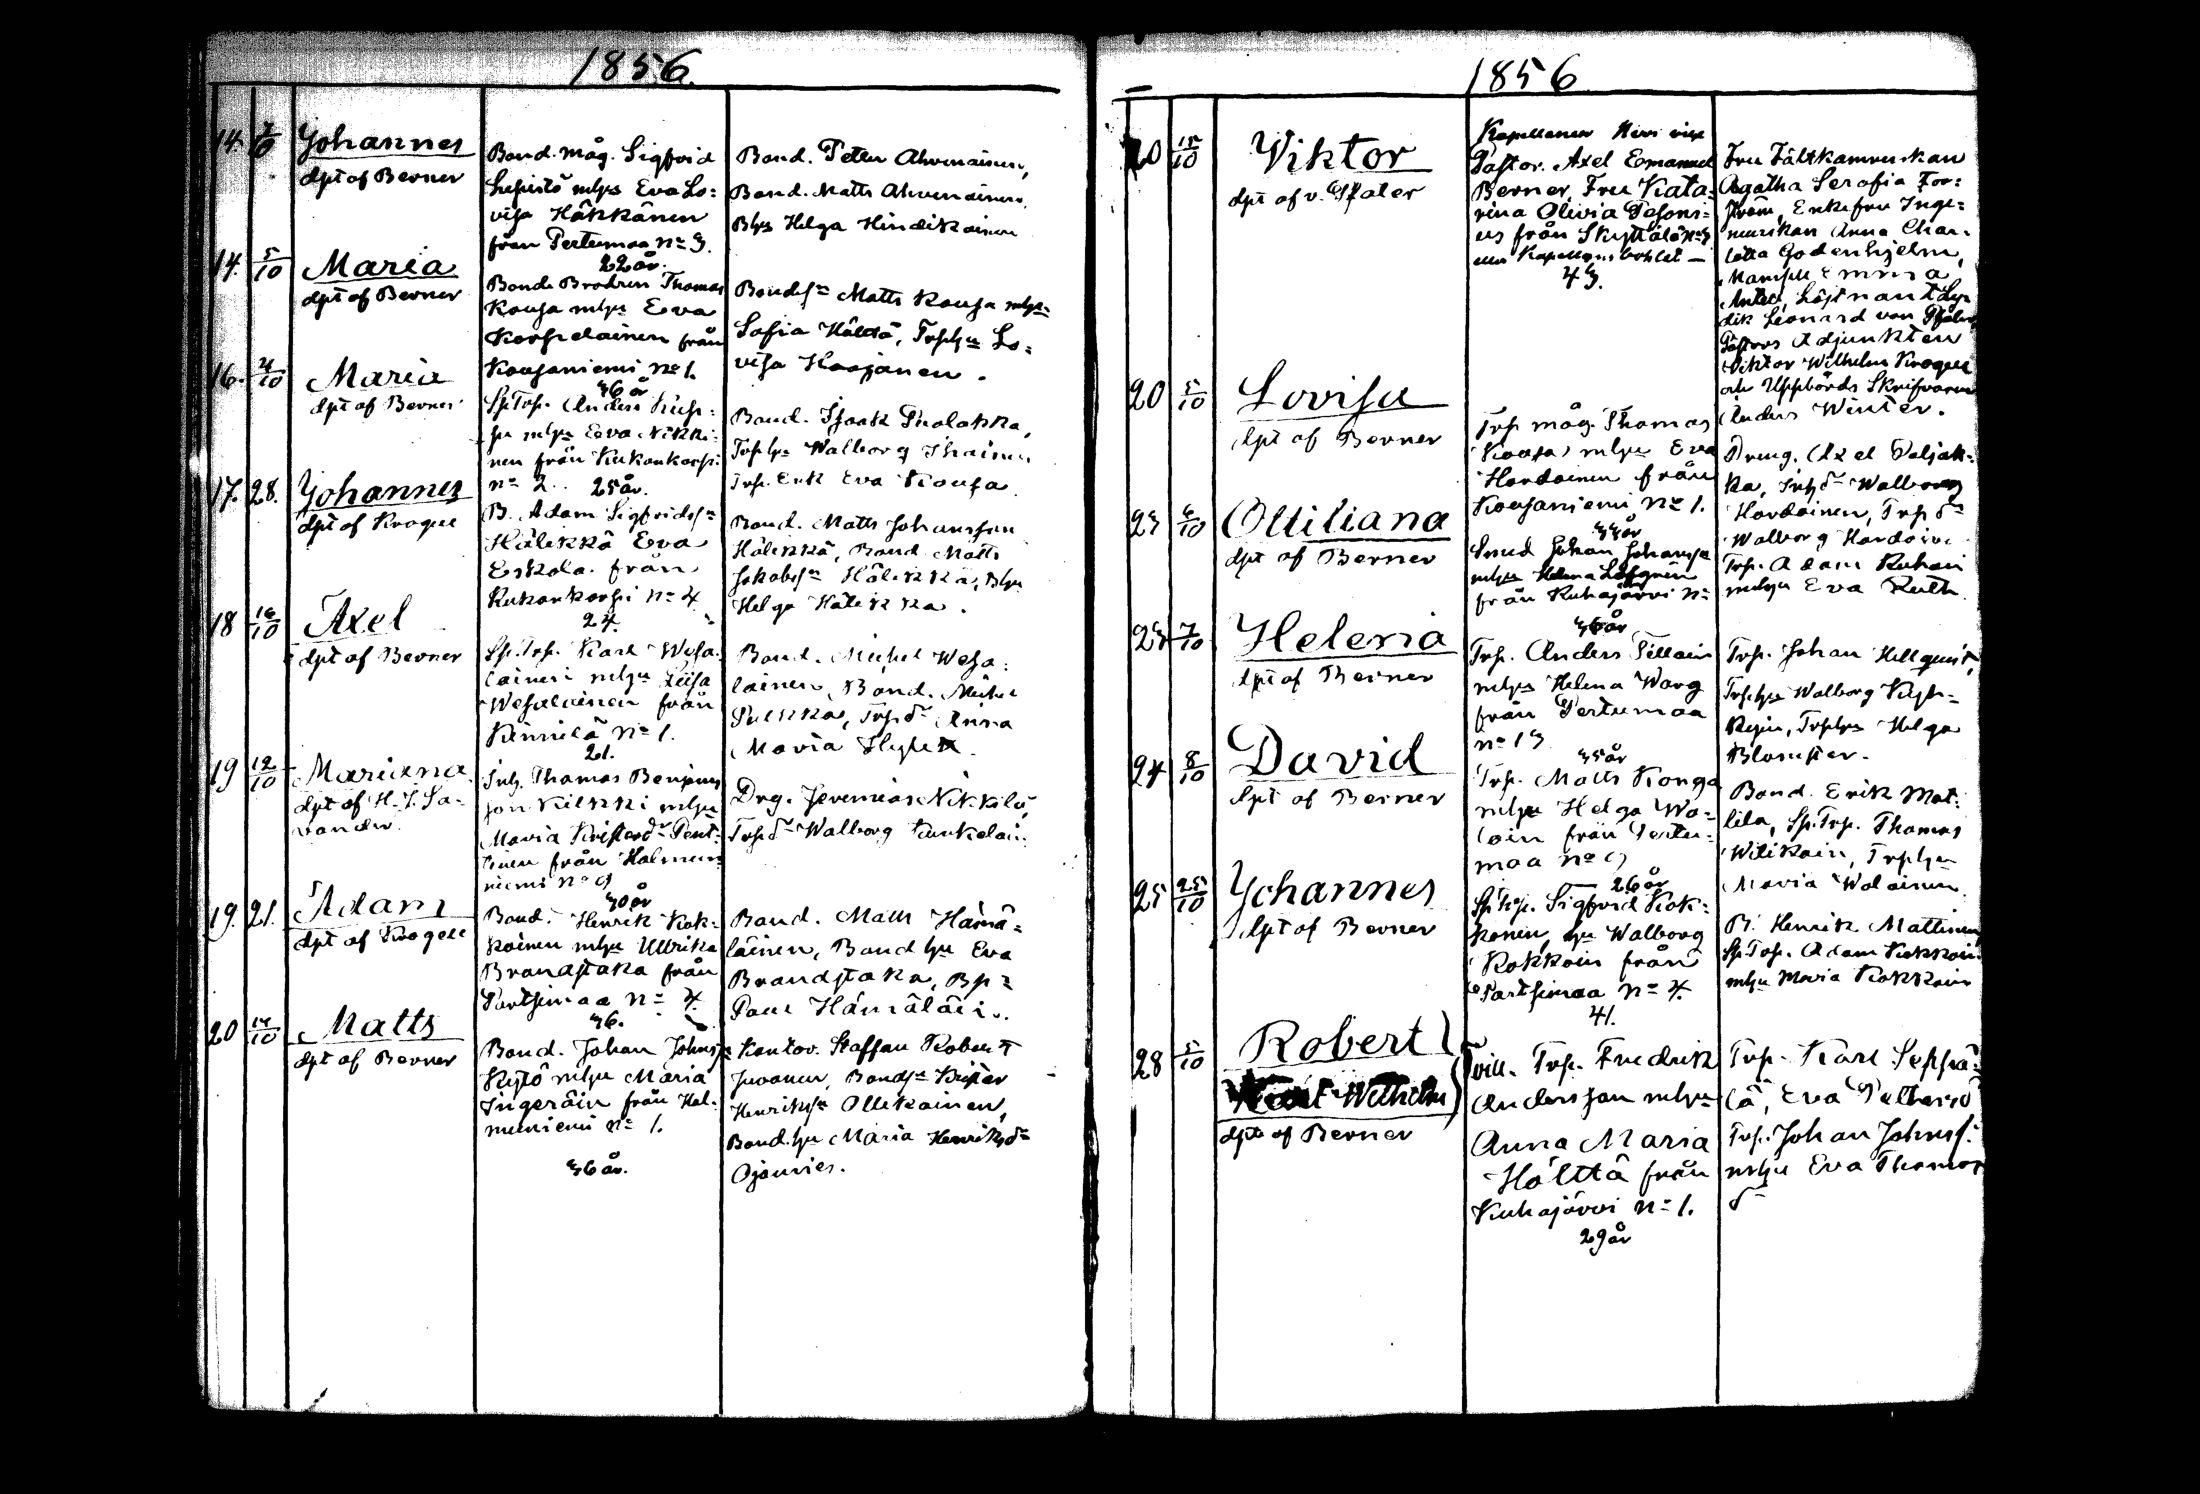 1856.
14. 7/10 Johannes
dpt af Berner
Bond. måg. Sigfrid
Lepistö mhu Eva Lo=
visa Häkkänen
från Pertumaa No 3.
22 år.
Bond. Petter Ahvenainen,
Bond. Matts Ahvenainen
Bhu Helga Hindikainen
14. 5/10 Maria
dpt af Berner
Bonde Brodren Thomas
Kousa mhu Eva
Korpelainen från
Kousaniemi No 1.
36 år
Bondes Matts Kousa mhu
Sofia Hölttä, Trphu Lo=
visa Haajanen.
16. 4/10 Maria
dpt af Berner
Sp.Trp. Anders
mhu Eva Nikki=
nen från Kukonkorpi
No 2. 25 år.
Bond. Isaak
Trphu Walborg Ihainen
Trp. Enk Eva Kousa
17. 28. Johannes
dpt af Krogell
B. Adam Sigfrids
Hälikkä Eva
Eskola från
Kukonkorpi No 4
24.
Bond. Matts Johansson
Hälikkä, Bond. Matts
Jakobs Hälikkä, Bhu
Helga Hälikkä.
18 16/10 Axel
dpt af Berner
Sp.Trp. Karl Wesa
lainen mhu Liisa
Wesalainen från
Kinnilä No 1.
21.
Bond. Michel Wesa=
lainen, Bond. Michel
Pulkka, Trpd Anna
Maria
19 12/10 Mariana
dpt af H. J. Sa=
vander.
Inh. Thomas Benjamins
son Kilkki mhu
Maria Kristersd Pent=
tinen från Halmeen
niemi No 9
40 år
Drg. Jeremias Nikkilä,
Trpd Walborg Kunkelain.
19. 21. Adam
dpt af Krogell
Bond. Henrik Kok=
koinen mhu Ullrika
Brandstaka från
Partsimaa No 4.
36.
Bond. Matts Hämä=
läinen, Bond hu Eva
Brandstaka, Bp
Paul Hämäläin.
20 14/10 Matts
dpt af Berner
Bond. Johan Johns
Kytö mhu Maria
Ingeräin från Hal=
meniemi No 1.
36 år.
Kantor. Staffan Robert
Juvonen, Bonds Krister
Henriks Ollikainen,
Bond. hu Maria Henriksd
Ojanies.
1856
20 15/10 Viktor
dpt af v. Pfaler
Kapellanen Herr vice
Pastor. Axel Emanuel
Berner, Fru Kata=
rina Olivia Pesoni=
us från Skyttälä No 3
eller Kapellansbohlet —
43.
Fru Fältkamrerskan
Agatha Serafia For=
ström, Enkefru Inge=
niörskan Anna Char=
lotta Godenhjelm,
Mamsell Emma
Antell, Löjtnant
Leonard von Pfaler
Pastors Adjunkten
Viktor Wilhelm Krogell
och Uppbörds Skrifvaren
Anders Winter.
20 5/10 Lovisa
dpt af Berner
Trp måg. Thomas
Kousa mhu Eva
Hardainen från
Kousaniemi No 1.
Dreng. Axel Valjak=
ka, Trpd Walborg
Hardainen, Trpd
Walborg Hardain
23 6/10 Ottiliana
dpt af Berner
Smed Johan Johanss
mhu Helena Löfgren
från Kuhajärvi No
36 år
Trp. Adam Kuhain
mhu Eva Ruth
23 7/10 Helena
dpt af Berner
Trp. Anders Pellain
mhu Helena Warg
från Pertumaa
No 13
35 år
Trp. Johan Hellquist,
Trphu Walborg
Trphu Helga
Blomster.
24 8/10 David
dpt af Berner
Trp. Matts Konga
mhu Helga Wa=
lain från Pertu=
maa No 9
26 år
Bond. Erik Mat=
tila, Sp.Trp. Thomas
Wilikain, Trphu
Maria Walainen
25 25/10 Johannes
dpt af Berner
Sp.trp. Sigfrid Kok=
konen, hu Walborg
Kokkoin från
Partsimaa No 4.
41.
B. Henrik Mattinen
Sp.Trp. Adam Kokkoin
mhu Maria Kokkoin
28 5/10 Robert
Wilhelm
dpt af Berner
Tvill. Trp. Fredrik
Andersson mhu
Anna Maria
Hölttä från
Kuhajärvi No 1.
29 år
Trp. Karl Seppä=
lä, Eva
Trp. Johan Johns.
mhu Eva Thomas
d